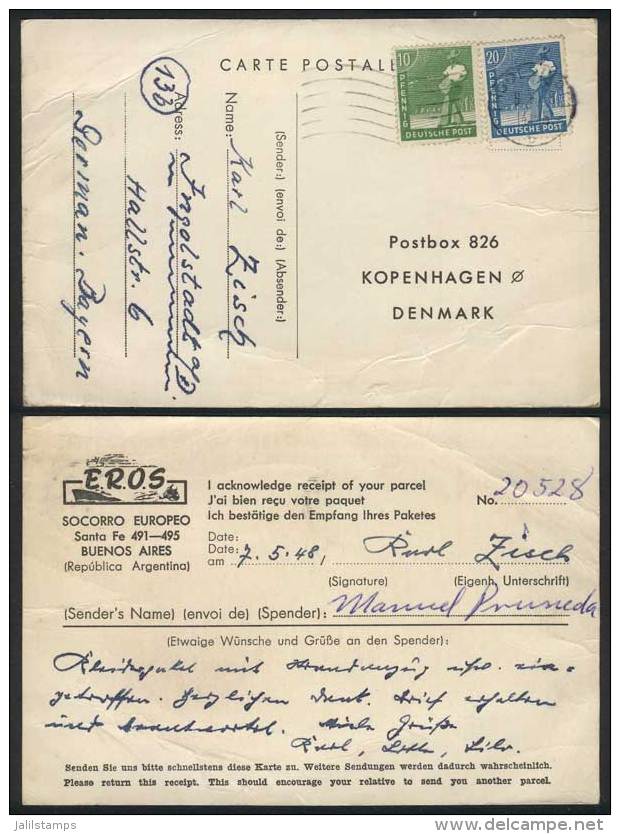 CARTE POSTALE
10
PFENNIG
DEUTSCHE POST
20
PFENNIG
DEUTSCHE POST
Postbox 826
KOPENHAGEN Ø
DENMARK
(Sender:) (envoi de:) (Absender:)
Name: Karl Zisch
Adress: Ingolstadt a/D.
Hallstr. 6
German. Bayern
13b
E.R.O.S.
SOCORRO EUROPEO
Santa Fe 491—495
BUENOS AIRES
(República Argentina)
I acknowledge receipt of your parcel
J'ai bien reçu votre paquet
Ich bestätige den Empfang Ihres Paketes
No. 20528
Date:
Date:
am 7.5.48, Karl Zisch
(Signature) (Eigenh. Unterschrift)
(Sender's Name) (envoi de) (Spender): Manuel Pruneda
(Etwaige Wünsche und Grüße an den Spender):
Kleiderpaket mit usw. ein-
getroffen. Herzlichen Dank. Brief erhalten
und beantwortet. Viele Grüße
Karl,
Senden Sie uns bitte schnellstens diese Karte zu. Weitere Sendungen werden dadurch wahrscheinlich.
Please return this receipt. This should encourage your relative to send you another parcel.
jalilstamps
delcampe.net